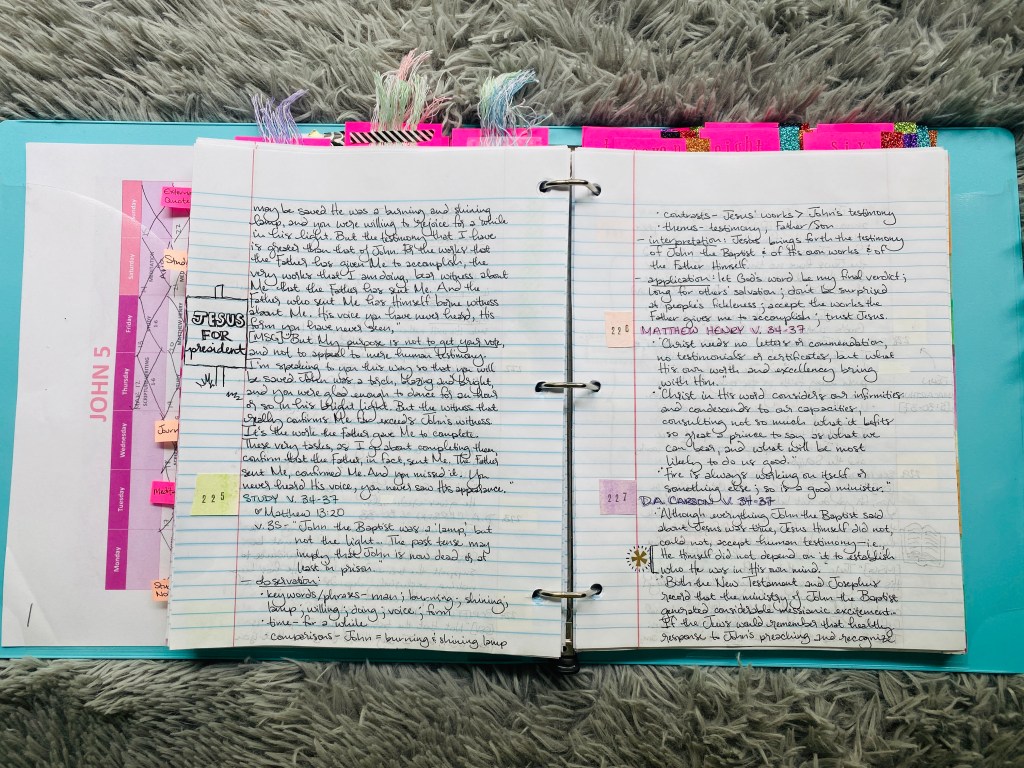 JOHN 5
Sunday
Saturday
Friday
Thursday
Wednesday
Tuesday
Monday
JESUS
FOR
president
may be saved He was a burning and shining
lamp, and you were willing to rejoice for a while
in his light. But the testimony that I have
is greater than that of John. For the works that
the Father has given Me to accomplish, the
very works that I am doing, bear witness about
Me that the Father has sent Me. And the
Father who sent Me has Himself borne witness
about Me. His voice you have never heard, His
form you have never seen,"
[MSG] "But My purpose is not to get your vote,
and not to appeal to mere human testimony.
I'm speaking to you this way so that you will
be saved. John was a torch, blazing and bright,
and you were glad enough to dance for an hour
or so in his bright light. But the witness that
really confirms Me far exceeds John's witness.
It's the work the Father gave Me to complete.
These very tasks, as I go about completing them,
confirm that the Father, in fact, sent Me. The Father
sent Me, confirmed Me. And you missed it. You
never heard His voice, you never saw His appearance."
225
STUDY V. 34-37
Matthew 13:20
v. 35- "John the Baptist was a 'lamp,' but
not the light. The past tense may
imply that John is now dead or at
least in prison."
- observation:
• keywords/phrases - man; burning; shining;
lamp; willing; doing; voice; form
• time - for a while
• comparisons - John = burning & shining lamp
• contrasts - Jesus' works > John's testimony
• themes - testimony, Father/Son
- interpretation: Jesus brings forth the testimony
of John the Baptist & of His own works & of
the Father Himself.
- application: let God's word be my final verdict;
long for others' salvation; don't be surprised
at people's fickleness; accept the works the
Father gives me to accomplish; trust Jesus.
226
MATTHEW HENRY V. 34-37
• "Christ needs no letters of commendation,
no testimonials or certificates, but what
His own worth and excellency bring
with Him."
• "Christ in His word considers our infirmities
and condescends to our capacities,
consulting not so much what it befits
so great a prince to say as what we
can bear, and what will be most
likely to do us good."
• "Fire is always working on itself or
something else; so is a good minister."
227
D.A. CARSON V. 34-37
• "Although everything John the Baptist said
about Jesus was true, Jesus Himself did not,
could not, accept human testimony—i.e.,
He Himself did not depend on it to establish
who He was in His own mind."
• "Both the New Testament and Josephus
record that the ministry of John the Baptist
generated considerable messianic excitement.
If the Jews would remember that healthy
response to John's preaching and recognize